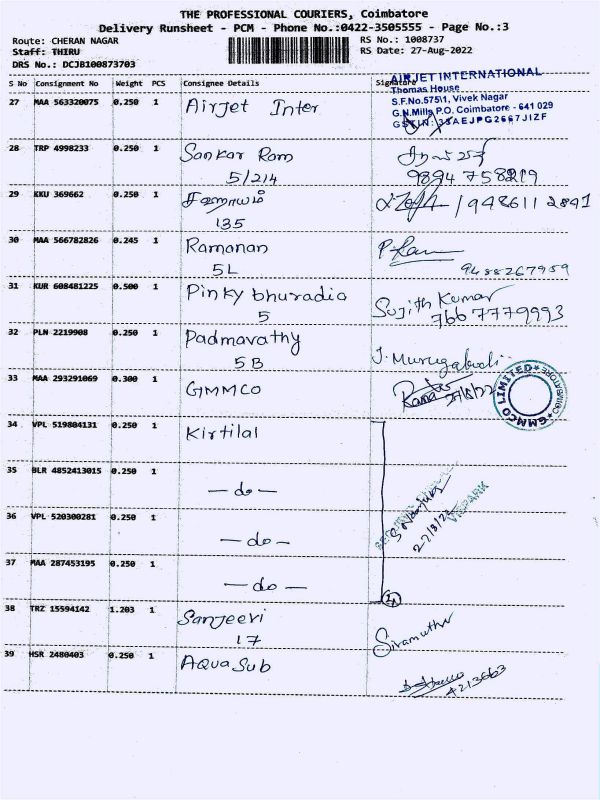 THE PROFESSIONAL COURIERS, Coimbatore
Delivery Runsheet - PCM - Phone No.:0422-3505555 - Page No.:3
Route: CHERAN NAGAR
RS No.: 1008737
Staff: THIRU
RS Date: 27-Aug-2022
DRS No.: DCJB100873703
S No Consignment No Weight PCS Consignee Details Signature
AIRJET INTERNATIONAL
Thomas House
S.F.No.575\1, Vivek Nagar
G.N.Mills P.O. Coimbatore - 641 029
GSTIN: 33AEJPG2667J1ZF
27 MAA 563320075 0.250 1 Airjet Inter
28 TRP 4998233 0.250 1 Sankar Ram
5/214 9894 758219
29 KKU 369662 0.250 1
135 948611 2891
30 MAA 566782826 0.245 1 Ramanan
5L 9488267959
31 KUR 608481225 0.500 1 Pinky bhuradia Sujith Kumar
5 7667779993
32 PLN 2219908 0.250 1 Padmavathy
5B J. Murugabali
33 MAA 293291069 0.300 1 GMMCO
GMMCO LIMITED
COIMBATORE
34 VPL 519804131 0.250 1 Kirtilal
35 BLR 4852413015 0.250 1
- do -
36 VPL 520300281 0.250 1
- do -
37 MAA 287453195 0.250 1
- do -
38 TRZ 15594142 1.203 1 Sanjeevi
17 Sivamuthu
39 HSR 2480403 0.250 1 Aqua Sub
4213663